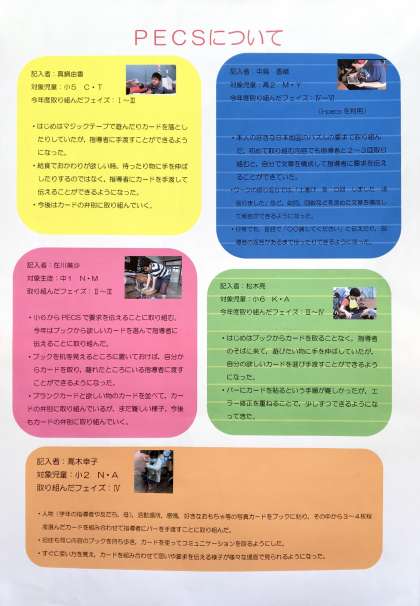 PECSについて
記入者：真鍋由香
対象児童：小5 C・T
今年度取り組んだフェイズ：Ⅰ～Ⅲ
・はじめはマジックテープで遊んだりカードを落とし
たりしていたが、指導者に手渡すことができるよう
になった。
・給食でおかわりが欲しい時、待ったり物に手を伸ば
したりするのではなく、指導者にカードを手渡して
伝えることができるようになった。
・今後はカードの弁別に取り組んでいく。
記入者：中島
対象児童：高2 M・Y
今年度取り組んだフェイズ：Ⅳ～Ⅵ
を利用)
・本人の好きな日本地図のパズルの要求で取り組ん
だ。初めて取り組む内容でも指導者と2～3回取り
組むと、自分で文章を構成して指導者に要求を伝え
ることができていた。
記入者：在川
対象生徒：中1 N・M
取り組んだフェイズ：Ⅱ～Ⅲ
・小6からPECSで要求を伝えることに取り組む。
今年はブックから欲しいカードを選んで指導者に
伝えることに取り組んだ。
・ブックを机の見えるところに置いておけば、自分か
らカードを取り、離れたところにいる指導者に渡す
ことができるようになった。
・ブランクカードと欲しい物のカードを並べて、カー
ドの弁別に取り組んでいるが、まだ難しい様子。今後
もカードの弁別に取り組んでいく。
記入者：松木亮
対象児童：小6 K・A
今年度取り組んだフェイズ：Ⅱ～Ⅳ
・はじめはブックからカードを取ることなく、指導者
のそばに来て、遊びたい物に手を伸ばしていたが、
自分の欲しいカードを選び手渡すことができるよう
になった。
・バーにカードを貼るという手順が難しかったが、エ
ラー修正を重ねることで、少しずつできるようにな
ってきた。
記入者：高木幸子
対象児童：小2 N・A
取り組んだフェイズ：Ⅳ
・人物（学年の指導者や友だち、母）、活動場所、感情、好きなおもちゃ等の写真カードをブックに貼り、その中から3～4枚程
度選んだカードを組み合わせて指導者にバーを手渡すことに取り組んだ。
・担任も同じ内容のブックを持ち歩き、カードを使ってコミュニケーションを図るようにした。
・すぐに使い方を覚え、カードを組み合わせて思いや要求を伝える様子が様々な場面で見られるようになった。